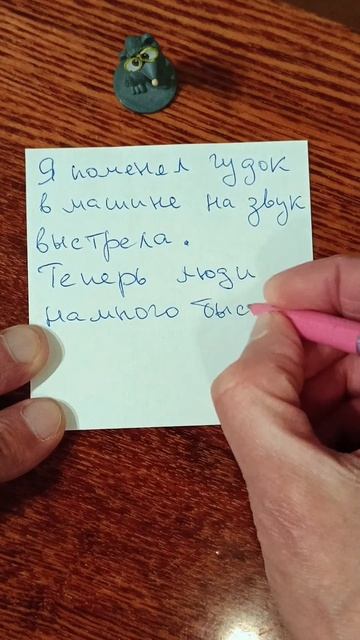 Я поменял гудок
в машине на звук
выстрела.
Теперь люди
намного быс